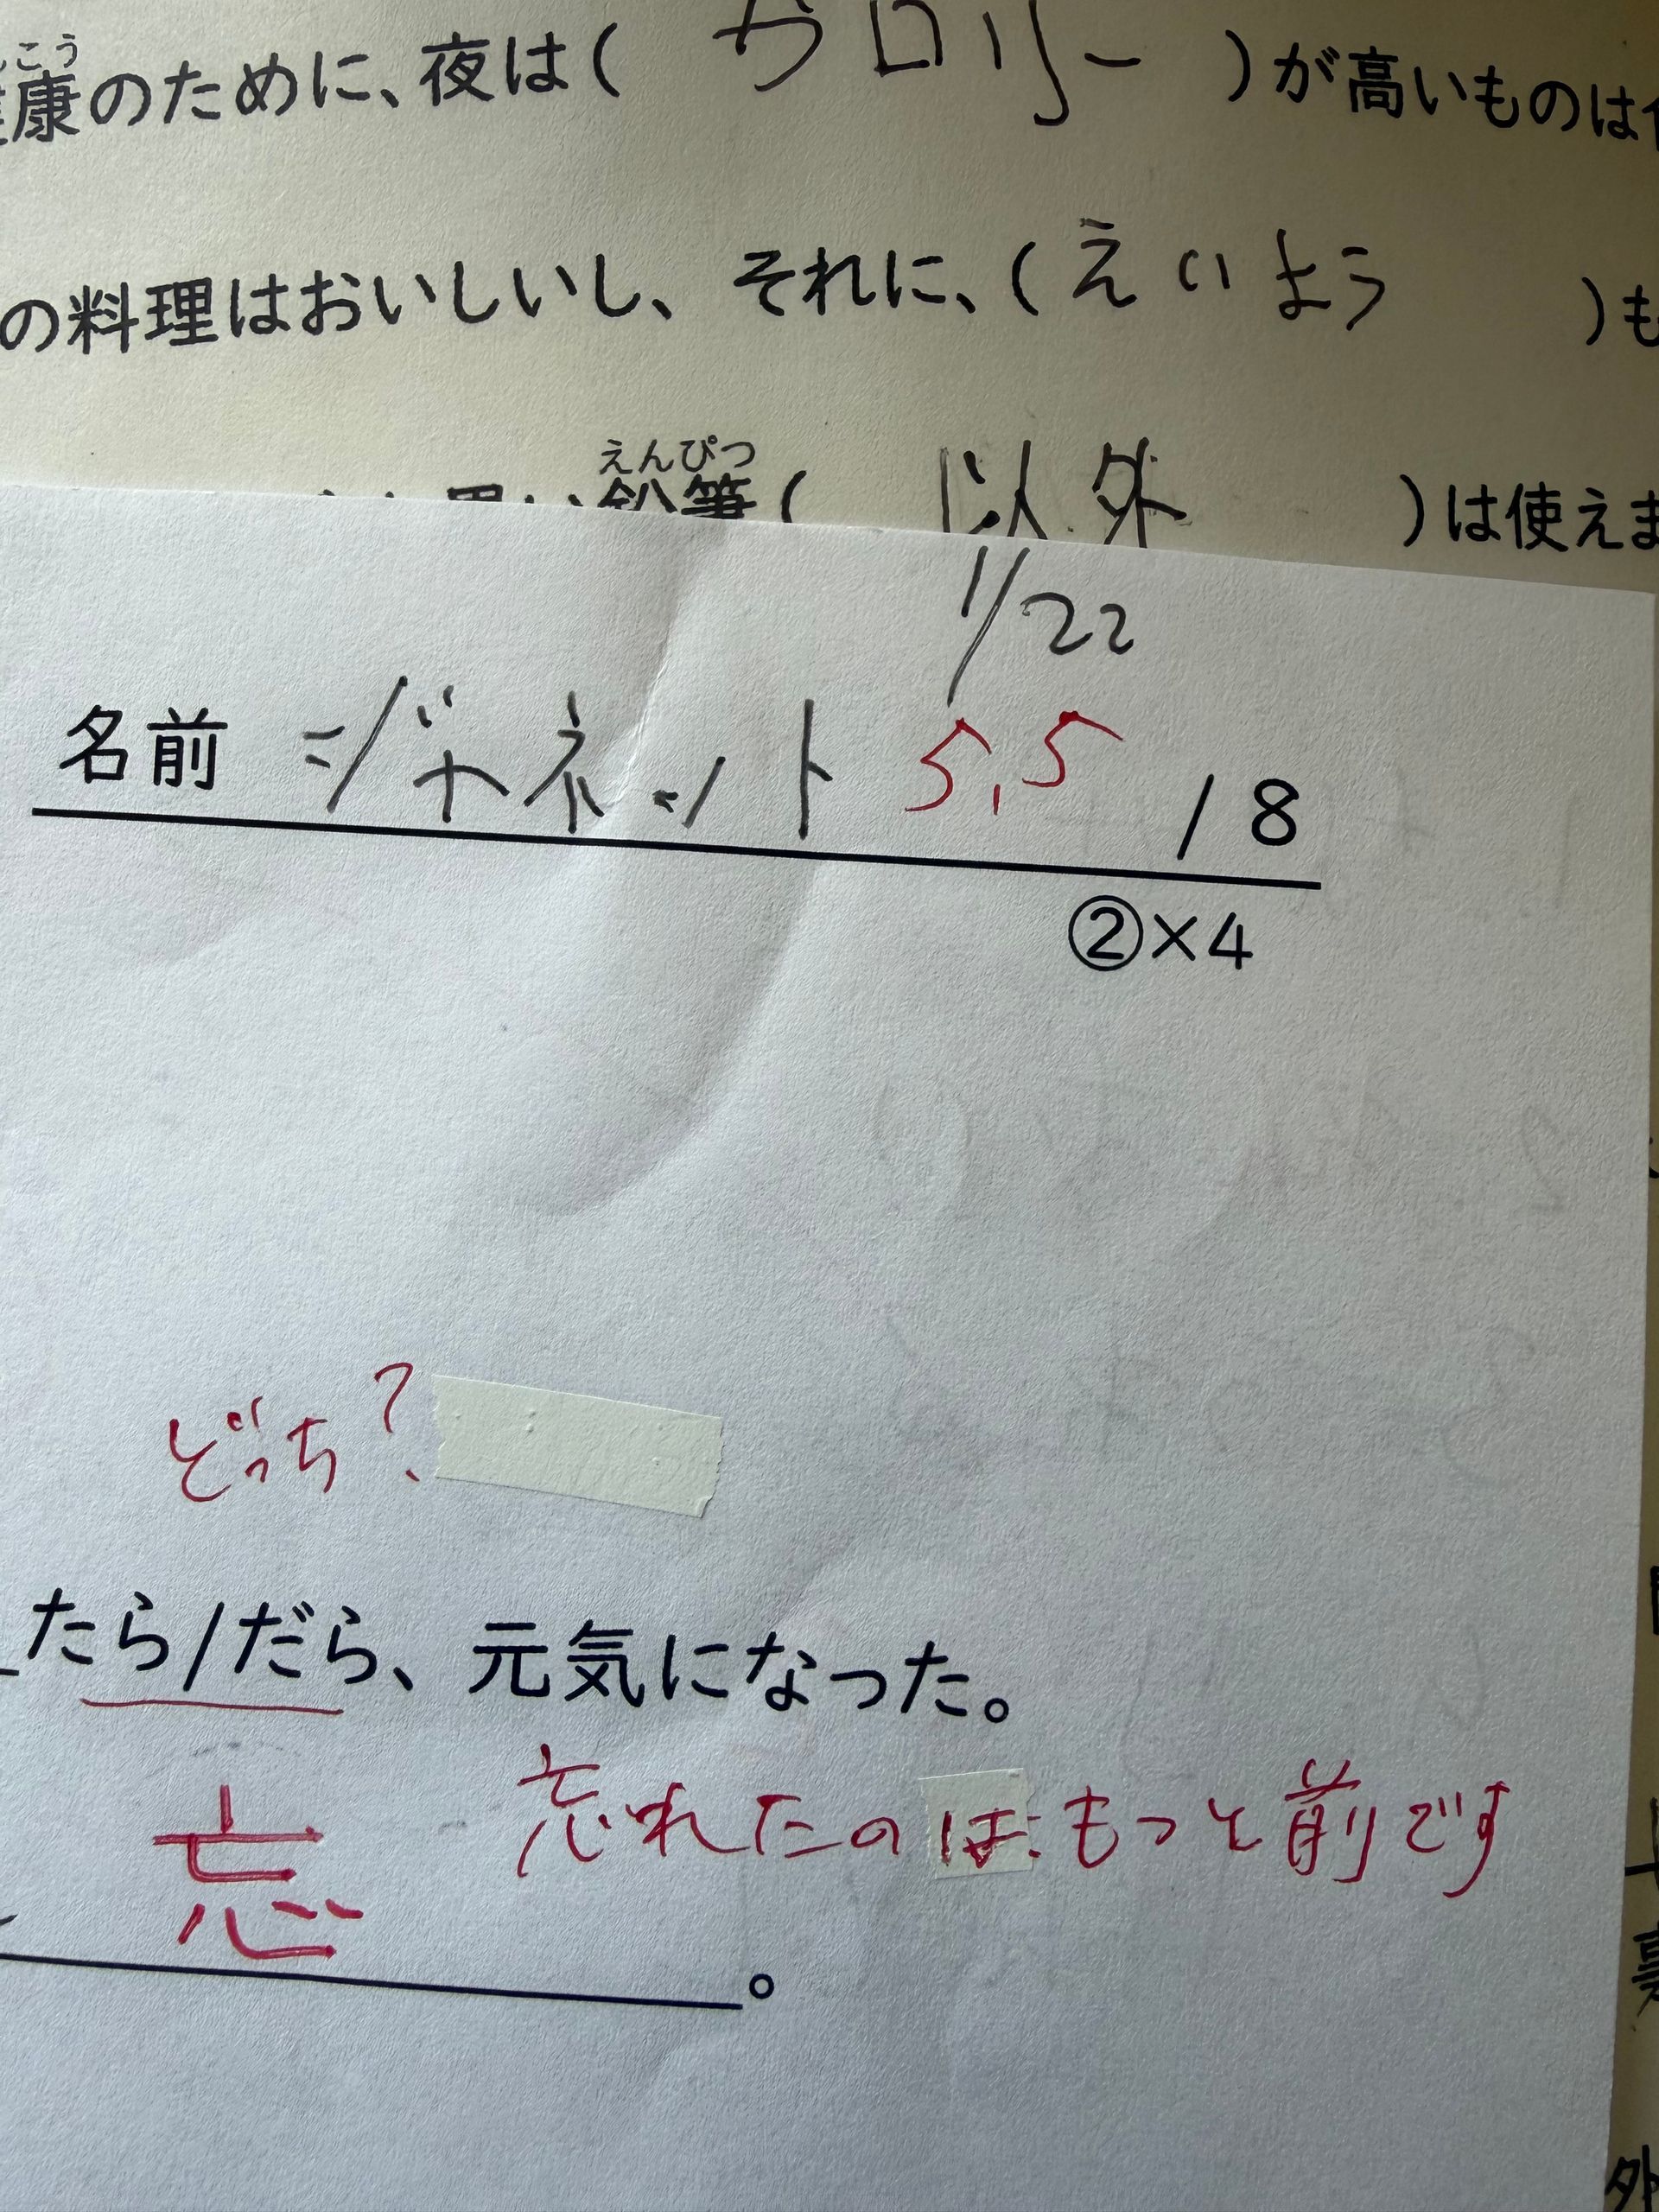 こう
康のために、夜は( カロリー )が高いものは
の料理はおいしいし、それに、( えいよう )も
えんぴつ
鉛筆( 以外 )は使えま
1/22
名前 ジャネット 5.5 /8
②×4
どっち?
たら/だら、元気になった。
忘 忘れたのは、もっと前です
。
外